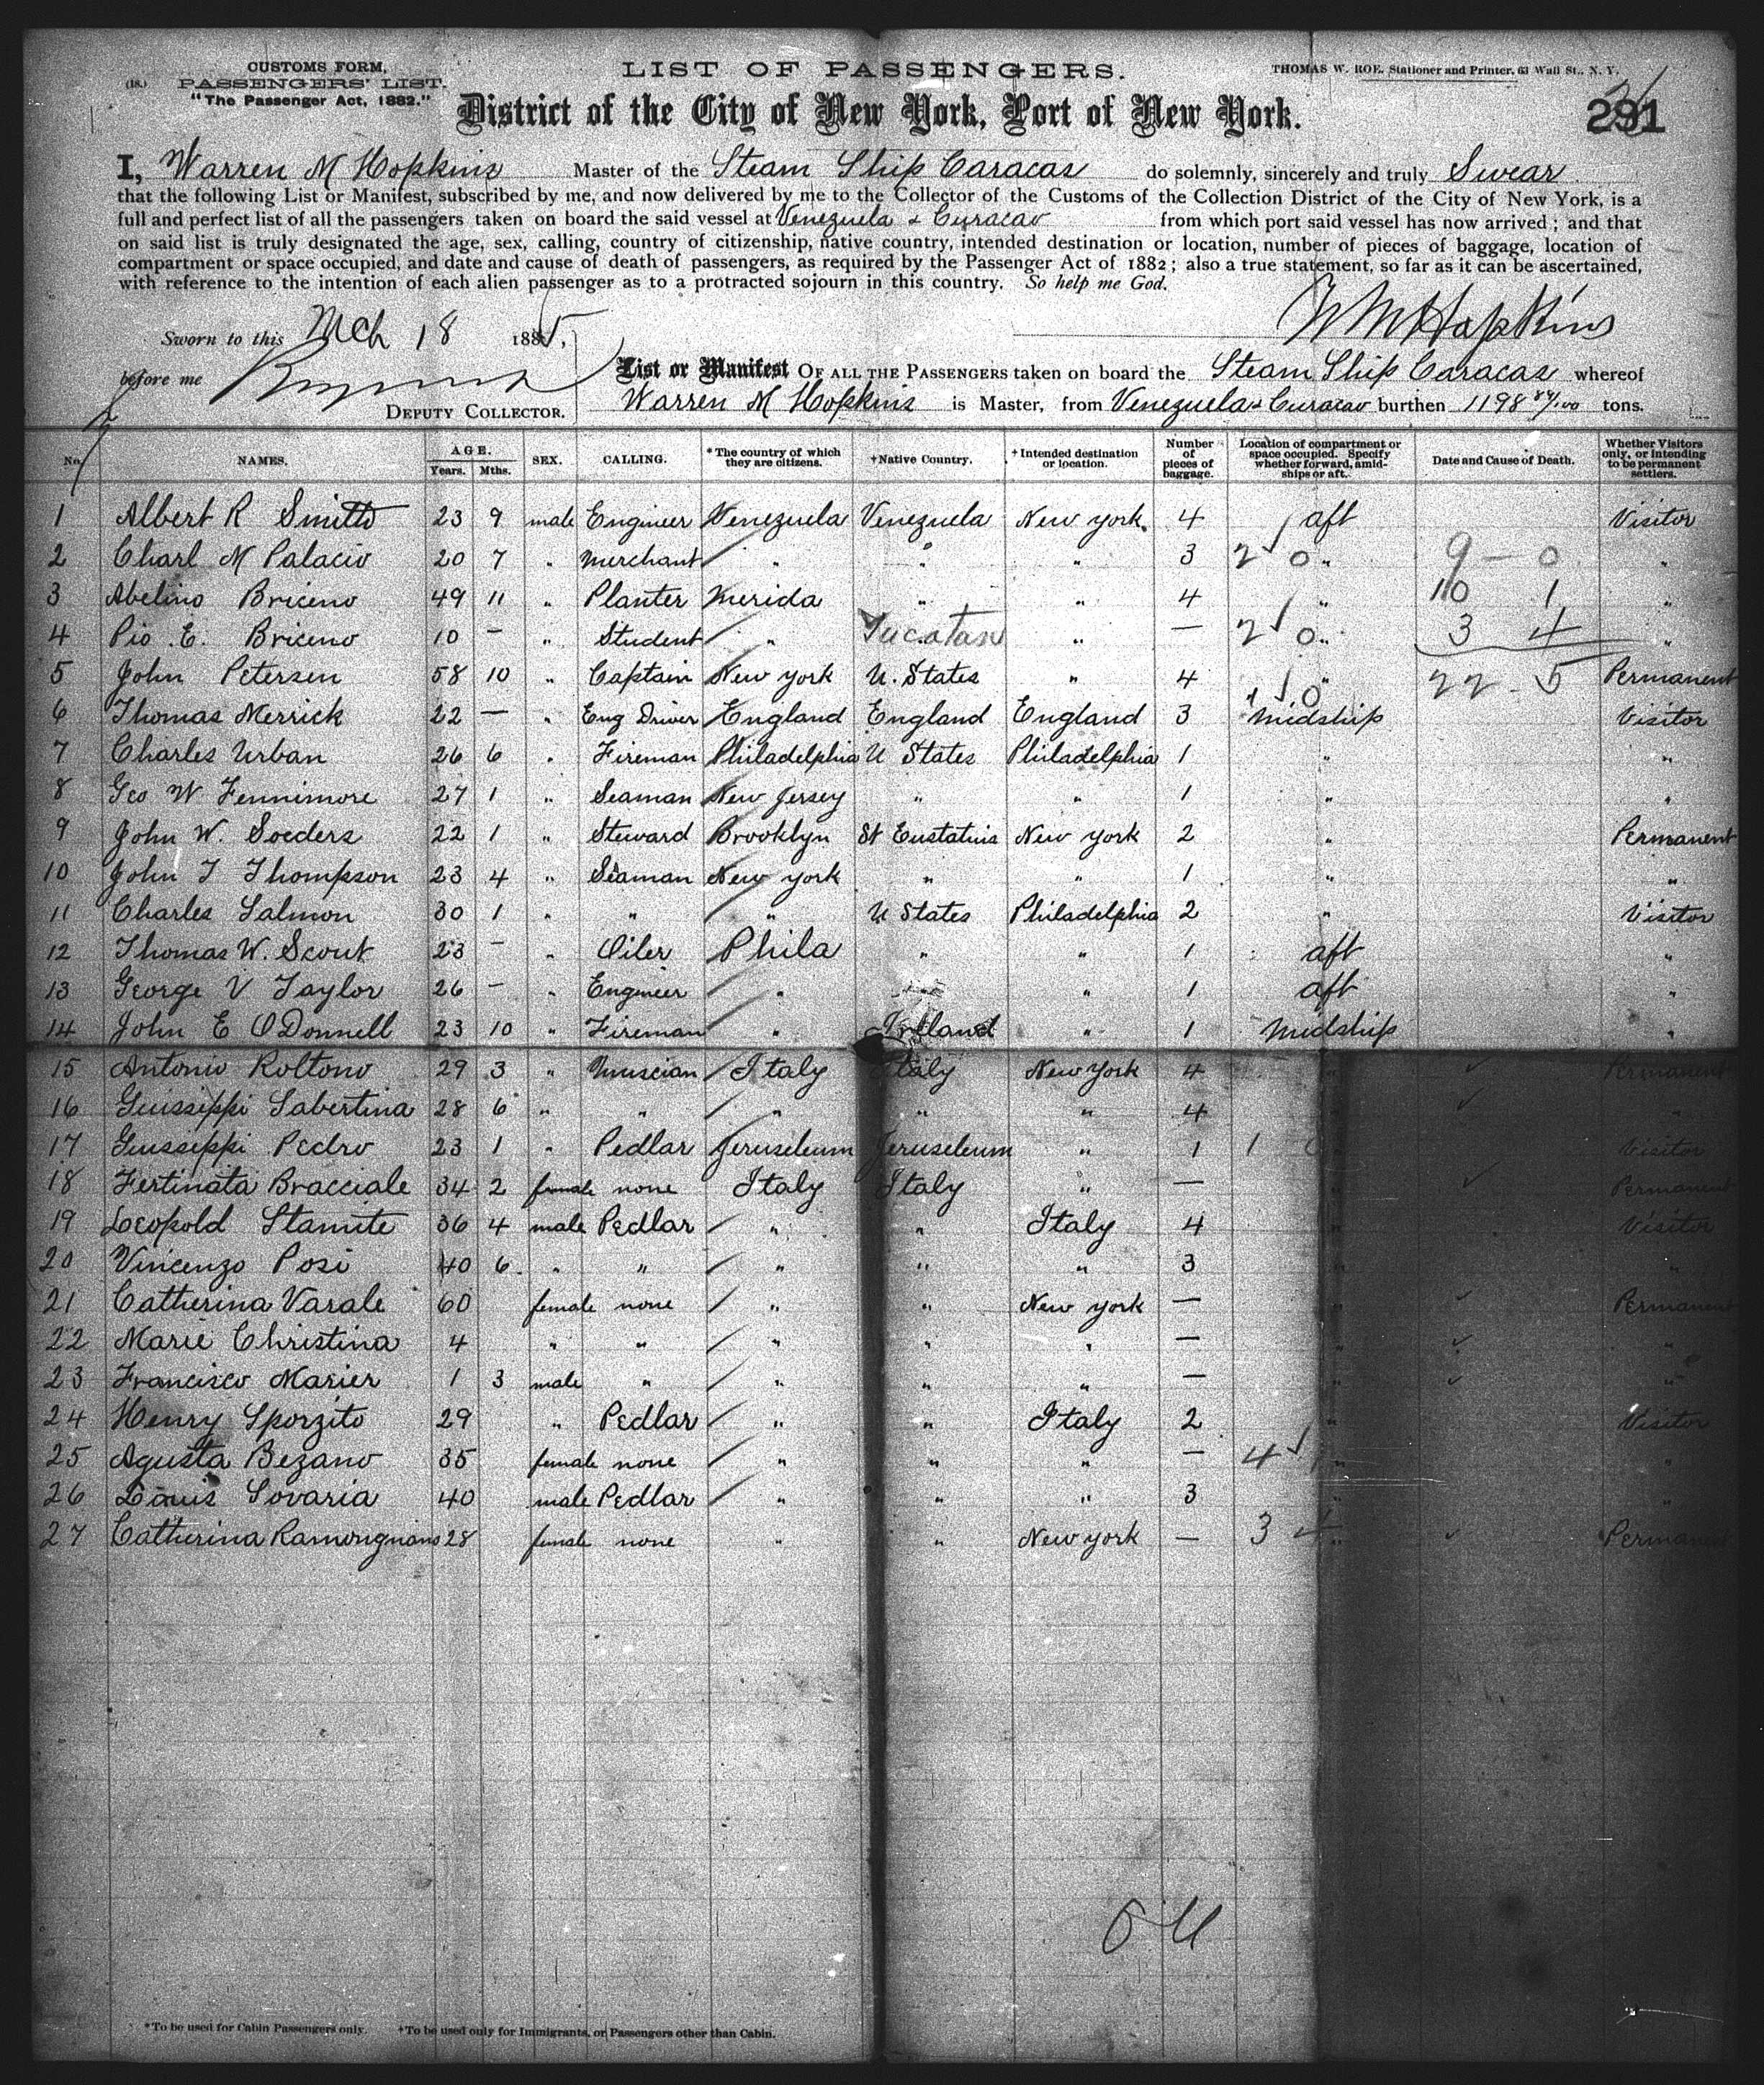 CUSTOMS FORM,
(18.) PASSENGERS' LIST.
"The Passenger Act, 1882."
LIST OF PASSENGERS.
THOMAS W. ROE, Stationer and Printer, 63 Wall St., N. Y.
District of the City of New York, Port of New York.
291
I, Warren M Hopkins Master of the Steam Ship Caracas do solemnly, sincerely and truly Swear
that the following List or Manifest, subscribed by me, and now delivered by me to the Collector of the Customs of the Collection District of the City of New York, is a
full and perfect list of all the passengers taken on board the said vessel at Venezuela & Curacao from which port said vessel has now arrived; and that
on said list is truly designated the age, sex, calling, country of citizenship, native country, intended destination or location, number of pieces of baggage, location of
compartment or space occupied, and date and cause of death of passengers, as required by the Passenger Act of 1882; also a true statement, so far as it can be ascertained,
with reference to the intention of each alien passenger as to a protracted sojourn in this country. So help me God.
Sworn to this Mch 18 1885,
W M Hopkins
before me
DEPUTY COLLECTOR.
List or Manifest OF ALL THE PASSENGERS taken on board the Steam Ship Caracas whereof
Warren M Hopkins is Master, from Venezuela & Curacao burthen 1198 84/100 tons.
No. NAMES. AGE. Years. Mths. SEX. CALLING. *The country of which they are citizens. †Native Country. †Intended destination or location. Number of pieces of baggage. Location of compartment or space occupied. Specify whether forward, amidships or aft. Date and Cause of Death. Whether Visitors only, or intending to be permanent settlers.
1 Albert R Smitts 23 9 male Engineer Venezuela Venezuela New York. 4 aft Visitor
2 Charl M Palacio 20 7 " merchant " " " 3 2 0 " 9 - 0 "
3 Abelino Briceno 49 11 " Planter Merida " " 4 " 10 1 "
4 Pio E. Briceno 10 - " Student " Yucatan " - 2 0 " 3 4 "
5 John Petersen 58 10 " Captain New York U. States " 4 " 22 - 5 Permanent
6 Thomas Merrick 22 - " Eng Driver England England England 3 1 0 Midship Visitor
7 Charles Urban 26 6 " Fireman Philadelphia U States Philadelphia 1 " "
8 Geo W Fennimore 27 1 " Seaman New Jersey " " 1 " "
9 John W. Soeders 22 1 " Steward Brooklyn St Eustatius New York 2 " Permanent
10 John T Thompson 23 4 " Seaman New York " " 1 " "
11 Charles Salmon 30 1 " " " U States Philadelphia 2 " Visitor
12 Thomas W. Scout 23 - " Oiler Phila " " 1 aft "
13 George V Taylor 26 - " Engineer " " " 1 aft "
14 John E O'Donnell 23 10 " Fireman " Ireland " 1 Midship "
15 Antonio Roltono 29 3 " Muscian Italy Italy New York 4 " Permanent
16 Guissippi Sabertina 28 6 " " " " " 4 " "
17 Guisseppi Pedro 23 1 " Pedlar Jeruseleum Jeruseleum " 1 1 0 " Visitor
18 Fertinata Bracciale 34 2 female none Italy Italy " - " Permanent
19 Leopold Stamite 36 4 male Pedlar " " Italy 4 " Visitor
20 Vincenzo Posi 40 6 " " " " " 3 " "
21 Catherina Varale 60 female none " " New York - " Permanent
22 Marie Christina 4 " " " " " - " "
23 Francisco Marier 1 3 male " " " " - " "
24 Henry Sporzito 29 " Pedlar " " Italy 2 " Visitor
25 Agusta Bezano 35 female none " " " - 4 1 " "
26 Louis Sovaria 40 male Pedlar " " " 3 " "
27 Catherina Ramongnano 28 female none " " New York - 3 4 " Permanent
*To be used for Cabin Passengers only. †To be used only for Immigrants, or Passengers other than Cabin.